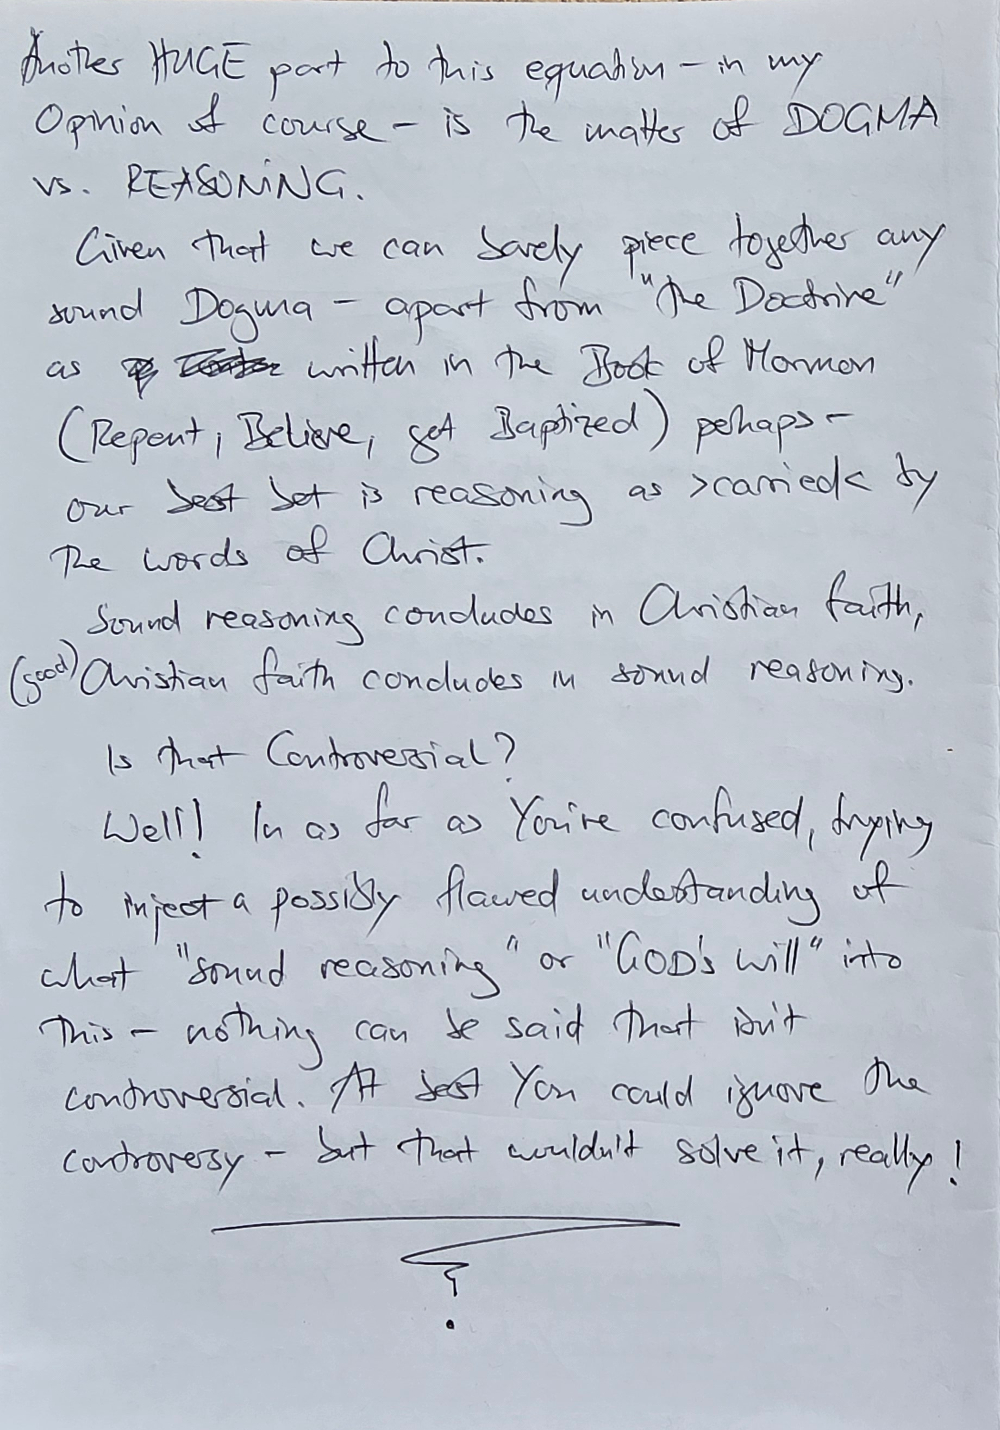 Another HUGE part to this equation – in my
Opinion of course – is the matter of DOGMA
vs. REASONING.
Given that we can barely piece together any
sound Dogma – apart from "the Doctrine"
as written in the Book of Mormon
(Repent, Believe, get Baptized) perhaps –
our best bet is reasoning as >carried< by
the words of Christ.
Sound reasoning concludes in Christian faith,
(good) Christian faith concludes in sound reasoning.
Is that Controversial?
Well! In as far as You're confused, trying
to inject a possibly flawed understanding of
what "sound reasoning" or "GOD's will" into
this – nothing can be said that isn't
controversial. At best You could ignore the
controversy – but that wouldn't solve it, really!